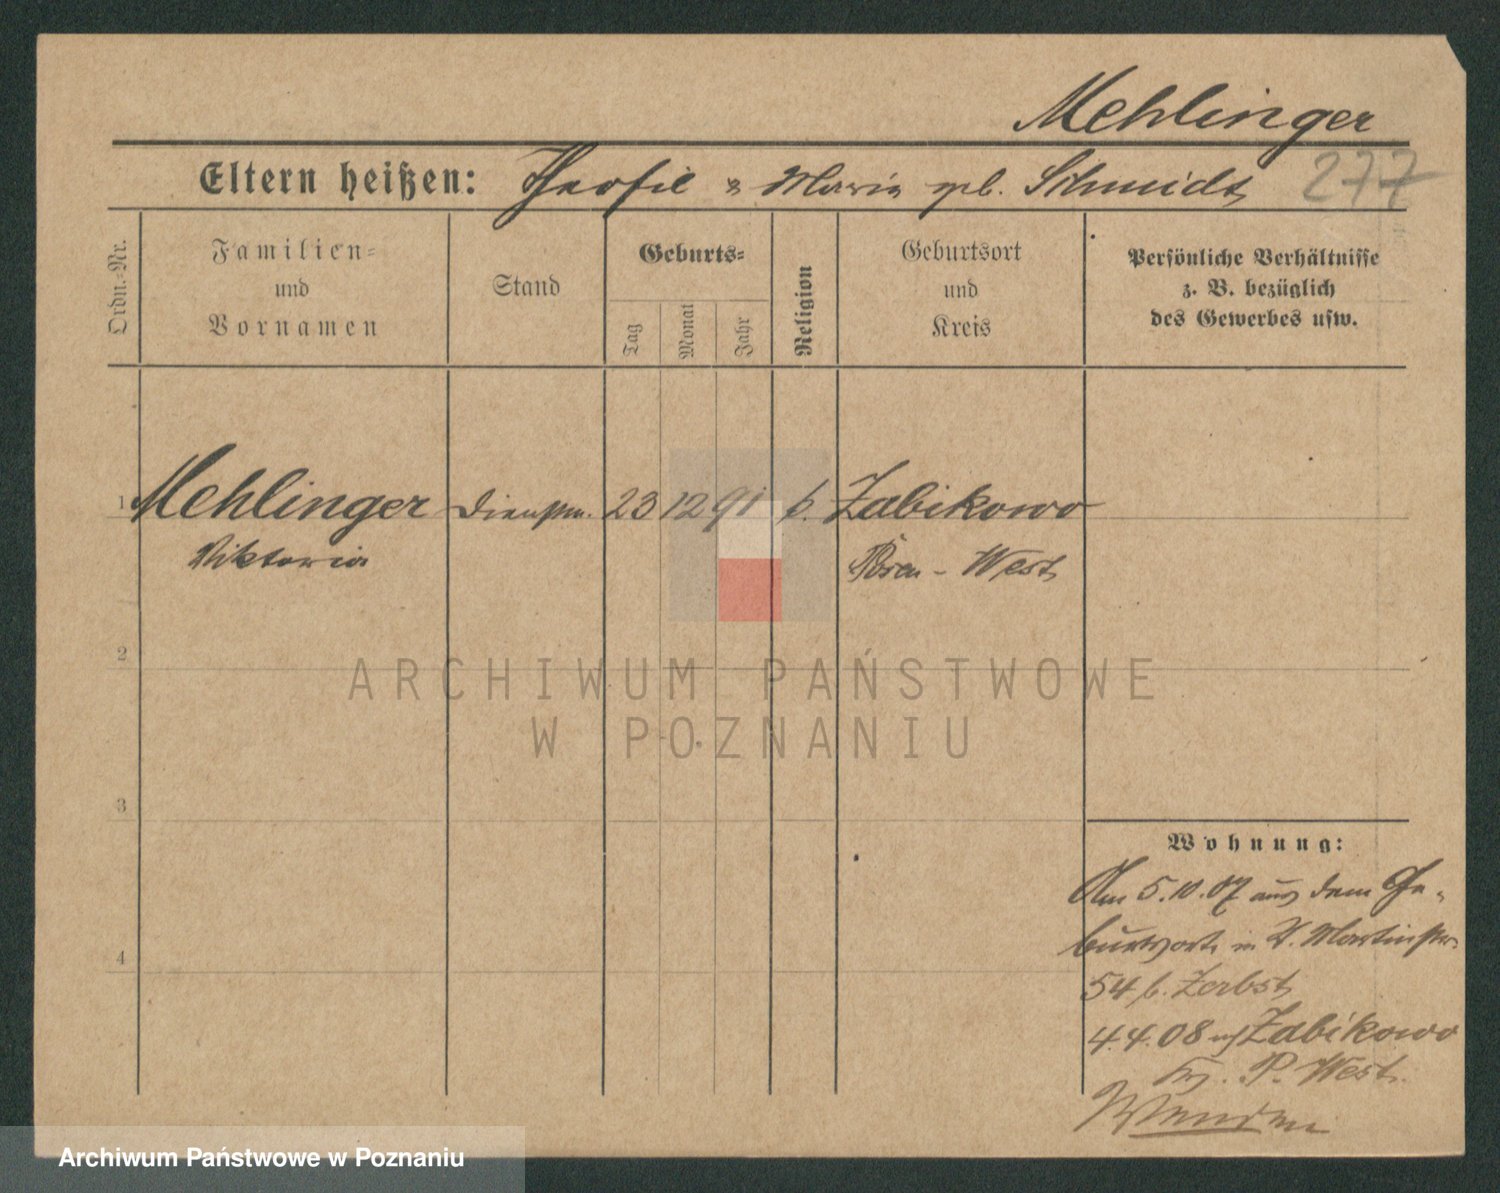 Mehlinger
Eltern heißen: Theofil u Maria geb. Schmidt 277
Ordn.-Nr.
Familien-
und
Vornamen
Stand
Geburts-
Tag
Monat
Jahr
Religion
Geburtsort
und
Kreis
Persönliche Verhältnisse
z. B. bezüglich
des Gewerbes usw.
1 Mehlinger Dienstm. 23 12 91 k. Zabikowo
Viktoria Posen - West
2
ARCHIWUM PAŃSTWOWE
W POZNANIU
3
Wohnung:
Am 5.10.07 aus dem Ge-
burtsort in St. Martinstr.
4
54 b. Zerbst
4.4.08 n Zabikowo
Krs. P. West.
Archiwum Państwowe w Poznaniu